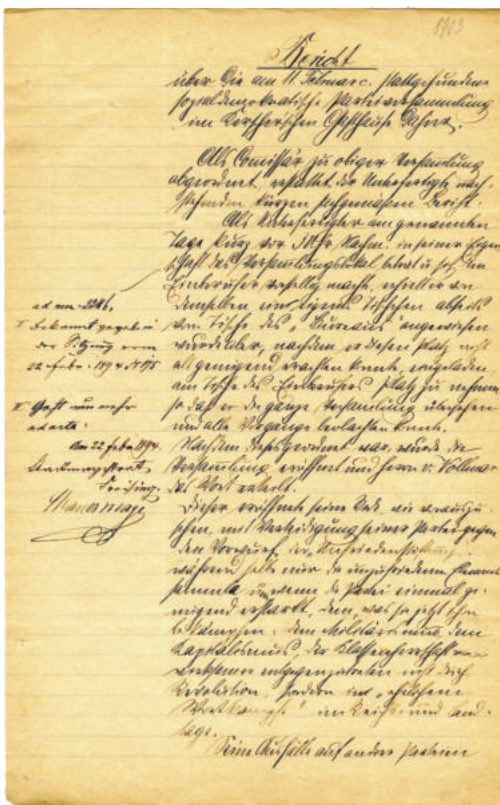 Bericht
über die am 11. Februar c. stattgefundene
sozialdemokratische Parteiversammlung
im Gasthause
Als Comissär zu obiger Versamlung
abgeordnet, erstattet der Unterfertigte nach-
stehenden kurzen Bericht.
Als Unterfertigter am genannten
Tage kurz vor 3 Uhr Nachm. in seiner Eigen-
schaft das Versamlungslokal betrat u. sich dem
Einberufer machte, erhielt er von
demselben ein eigenes Tischchen abseits
vom Tische des „Bureaus" angewiesen
wurde aber, nachdem er diesen Platz nicht
als genügend erachten konnte, eingeladen,
am Tische des Einberufers Platz zu nehmen
so daß er die ganze Versamlung übersehen
und alle Vorgänge beobachten konnte.
Nachdem dies geordnet war, wurde die
Versamlung eröffnet und Herrn v. Vollmar
das Wort erteilt.
Dieser eröffnete seine Rede, wie vorauszu-
sehen, mit Verteidigung seiner Partei gegen
den Vorwurf der
während selbe nur die unzufriedenen Elemente
sammle u. wenn die Partei einmal ge-
nügend erstarkt, dem, was sie jetzt schon
bekämpfen: dem Militärismus, dem
Kapitalismus, der Klassenherrschaft
wirksamer entgegenzutreten nicht durch
Revolution, sondern im „ehrlichen
Wortkampfe" im Reichs- und Land-
tage.
Seine Ausfälle auf andere Parteien
ad num. 2246.
I. Bekannt gegeben in
der Sitzung vom
22 Febr. 1894
II. Geht nun mehr
ad acta.
Am 22 Febr. 1894.
Stadtmagistrat
Freising.